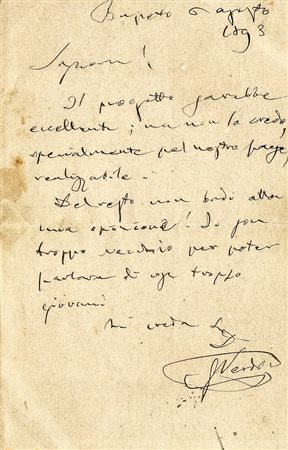 Busseto 6 agosto
1893
Signore!
Il progetto sarebbe
eccellente; ma non lo credo,
specialmente pel nostro paese,
realizzabile.
Del resto non badi alla
mia opinione! Io son
troppo vecchio per poter
parlare di cose troppo
giovani
Mi creda
GVerdi